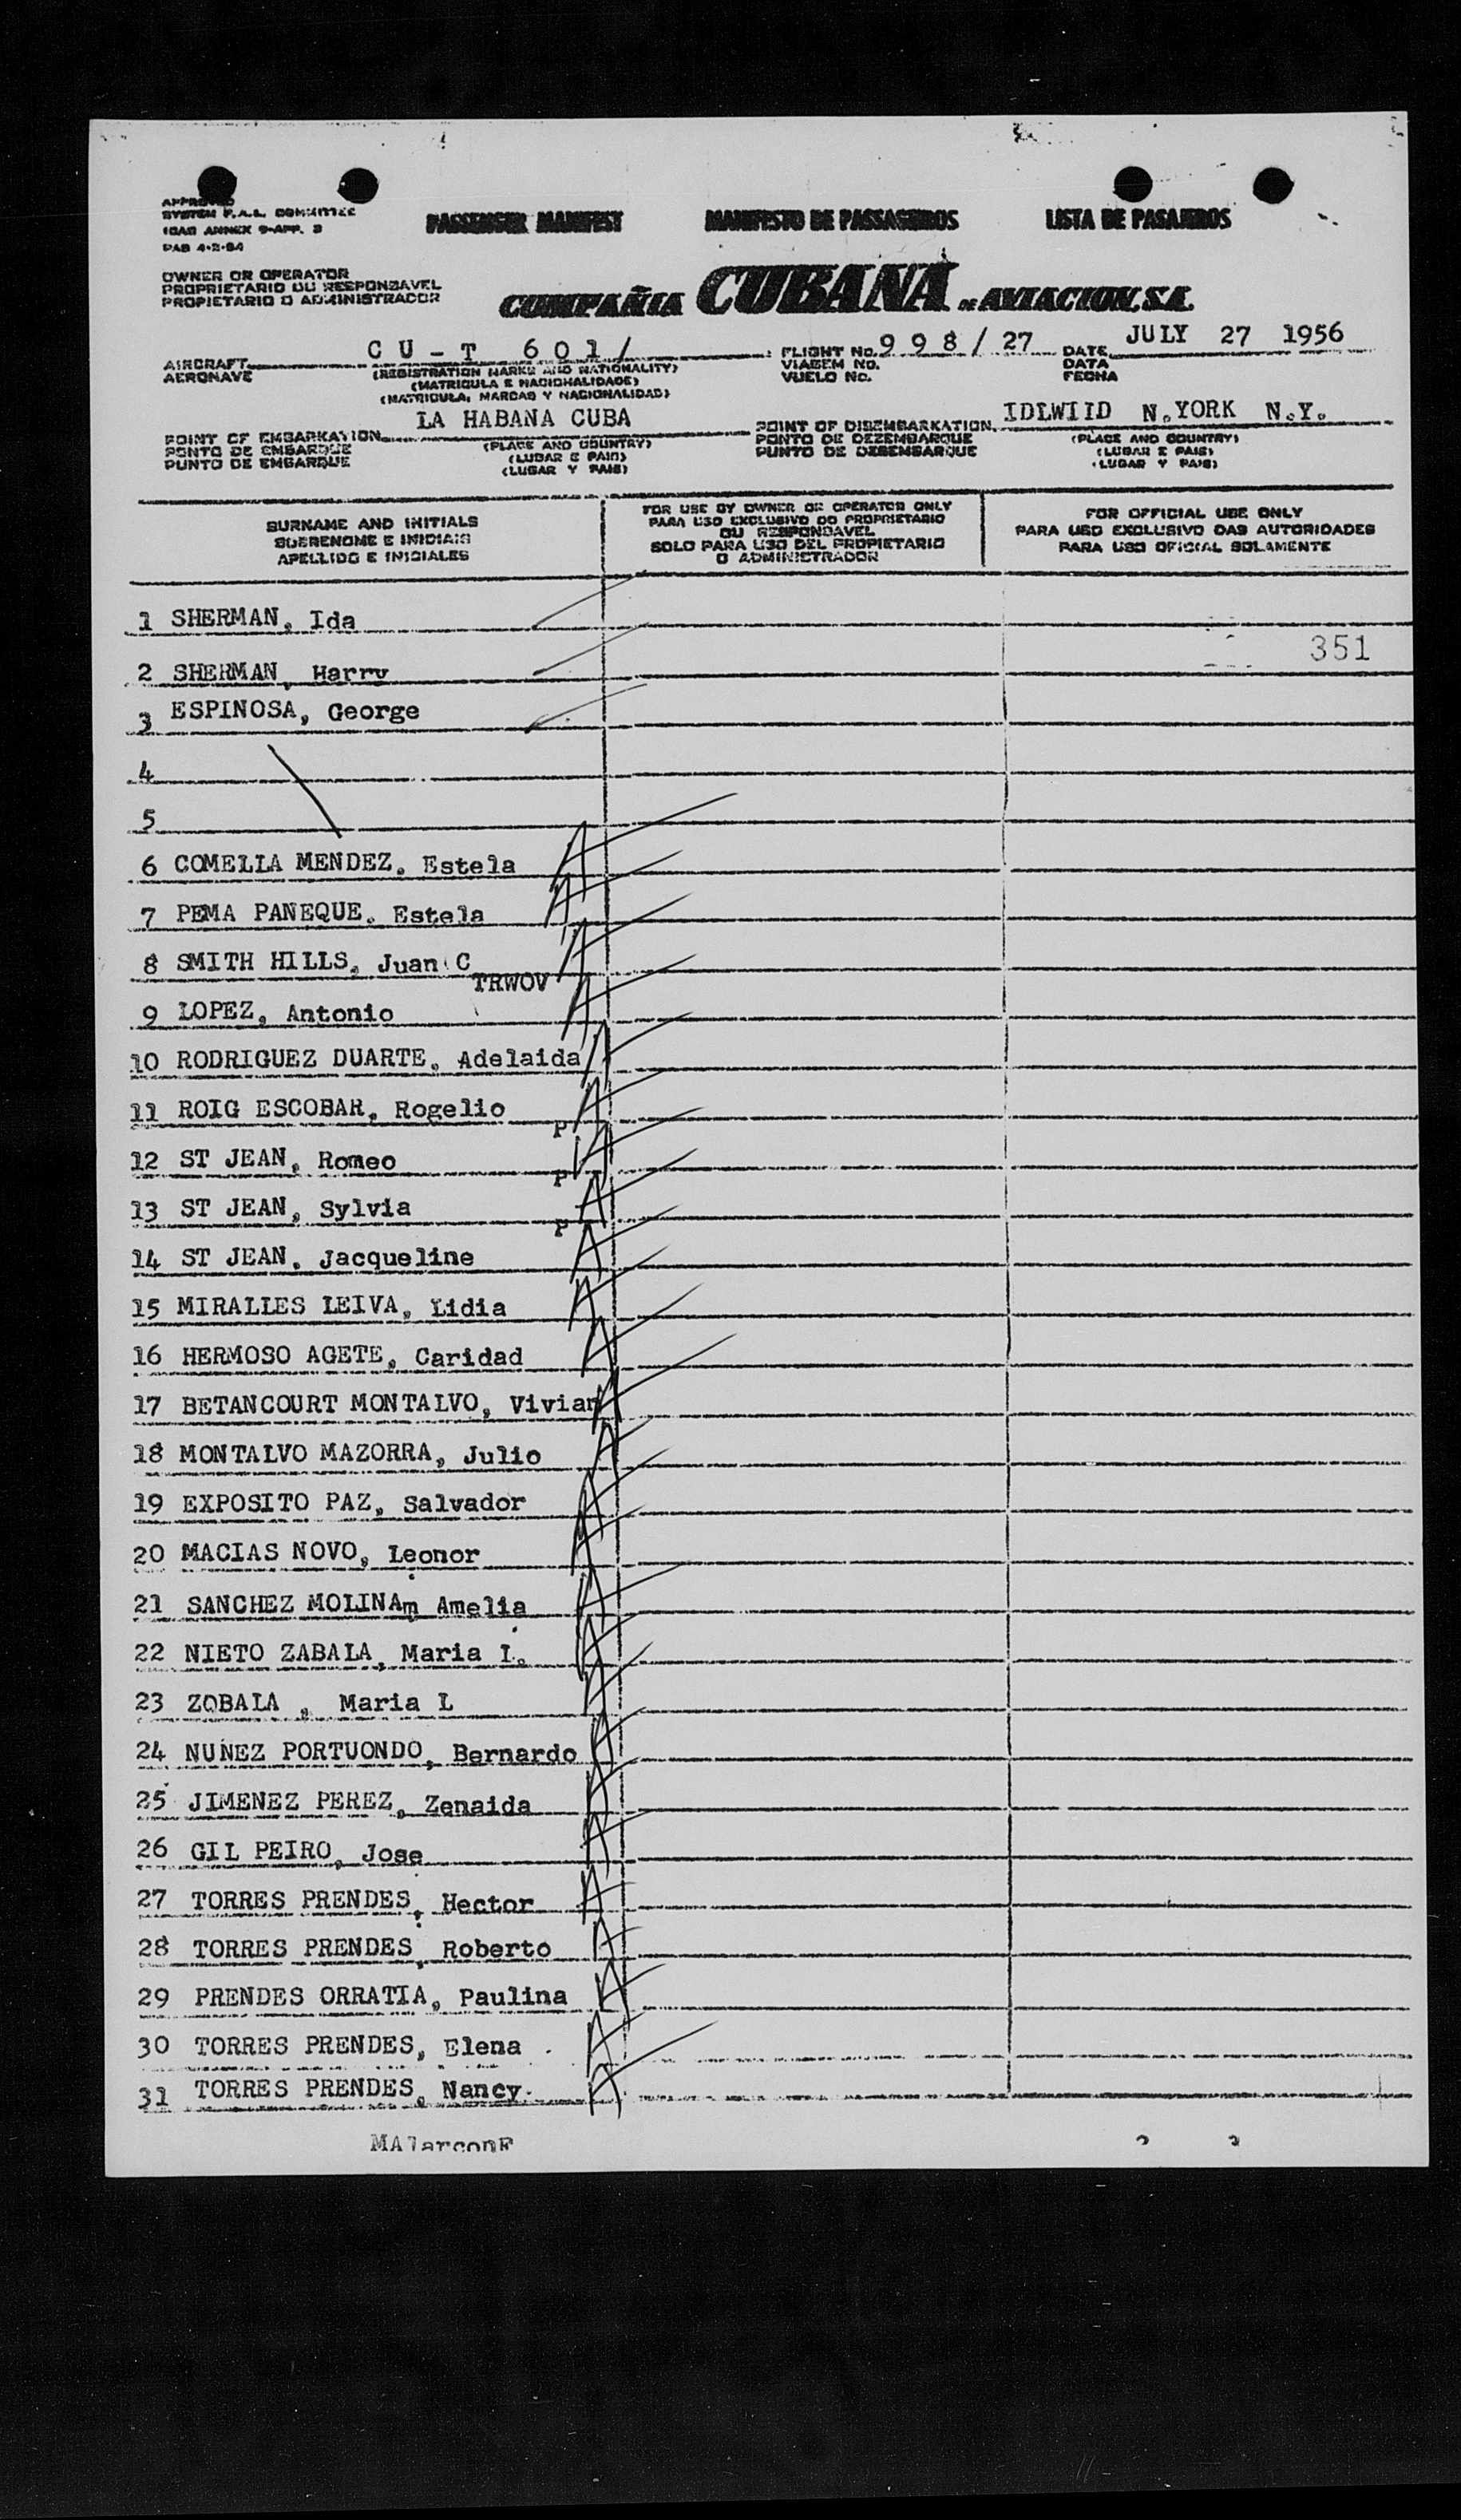 APPROVED
SYSTEM F.A.L. COMMITTEE
ICAO ANNEX 9-APP. 3
PAB 4-2-54
PASSENGER MANIFEST MANIFESTO DE PASSAGEIROS LISTA DE PASAJEROS
OWNER OR OPERATOR
PROPRIETARIO OU RESPONSAVEL
PROPIETARIO O ADMINISTRADOR
COMPAÑIA CUBANA DE AVIACION, S.A.
AIRCRAFT CU-T 601/ FLIGHT No. 998/27 DATE JULY 27 1956
AERONAVE (REGISTRATION MARKS AND NATIONALITY) VIAGEM NO. DATA
(MATRICULA E NACIONALIDADE) VUELO No. FECHA
(MATRICULA, MARCAS Y NACIONALIDAD)
POINT OF EMBARKATION LA HABANA CUBA POINT OF DISEMBARKATION IDLWIID N.YORK N.Y.
PONTO DE EMBARQUE (PLACE AND COUNTRY) PONTO DE DEZEMBARQUE (PLACE AND COUNTRY)
PUNTO DE EMBARQUE (LUGAR E PAIS) PUNTO DE DESEMBARQUE (LUGAR E PAIS)
(LUGAR Y PAIS) (LUGAR Y PAIS)
SURNAME AND INITIALS
SOBRENOME E INICIAIS
APELLIDO E INICIALES
FOR USE BY OWNER OR OPERATOR ONLY
PARA USO EXCLUSIVO DO PROPRIETARIO
OU RESPONSAVEL
SOLO PARA USO DEL PROPIETARIO
O ADMINISTRADOR
FOR OFFICIAL USE ONLY
PARA USO EXCLUSIVO DAS AUTORIDADES
PARA USO OFICIAL SOLAMENTE
1 SHERMAN, Ida
351
2 SHERMAN, Harry
3 ESPINOSA, George
4
5
6 COMELLA MENDEZ, Estela
7 PEMA PANEQUE, Estela
8 SMITH HILLS, Juan C
TRWOV
9 LOPEZ, Antonio
10 RODRIGUEZ DUARTE, Adelaida
11 ROIG ESCOBAR, Rogelio
P
12 ST JEAN, Romeo
P
13 ST JEAN, Sylvia
P
14 ST JEAN, Jacqueline
15 MIRALLES LEIVA, Lidia
16 HERMOSO AGETE, Caridad
17 BETANCOURT MONTALVO, Vivian
18 MONTALVO MAZORRA, Julio
19 EXPOSITO PAZ, Salvador
20 MACIAS NOVO, Leonor
21 SANCHEZ MOLINAm Amelia
22 NIETO ZABALA, Maria I.
23 ZOBALA , Maria L
24 NUNEZ PORTUONDO, Bernardo
25 JIMENEZ PEREZ, Zenaida
26 GIL PEIRO, Jose
27 TORRES PRENDES, Hector
28 TORRES PRENDES, Roberto
29 PRENDES ORRATIA, Paulina
30 TORRES PRENDES, Elena
31 TORRES PRENDES, Nancy
MAlarconF